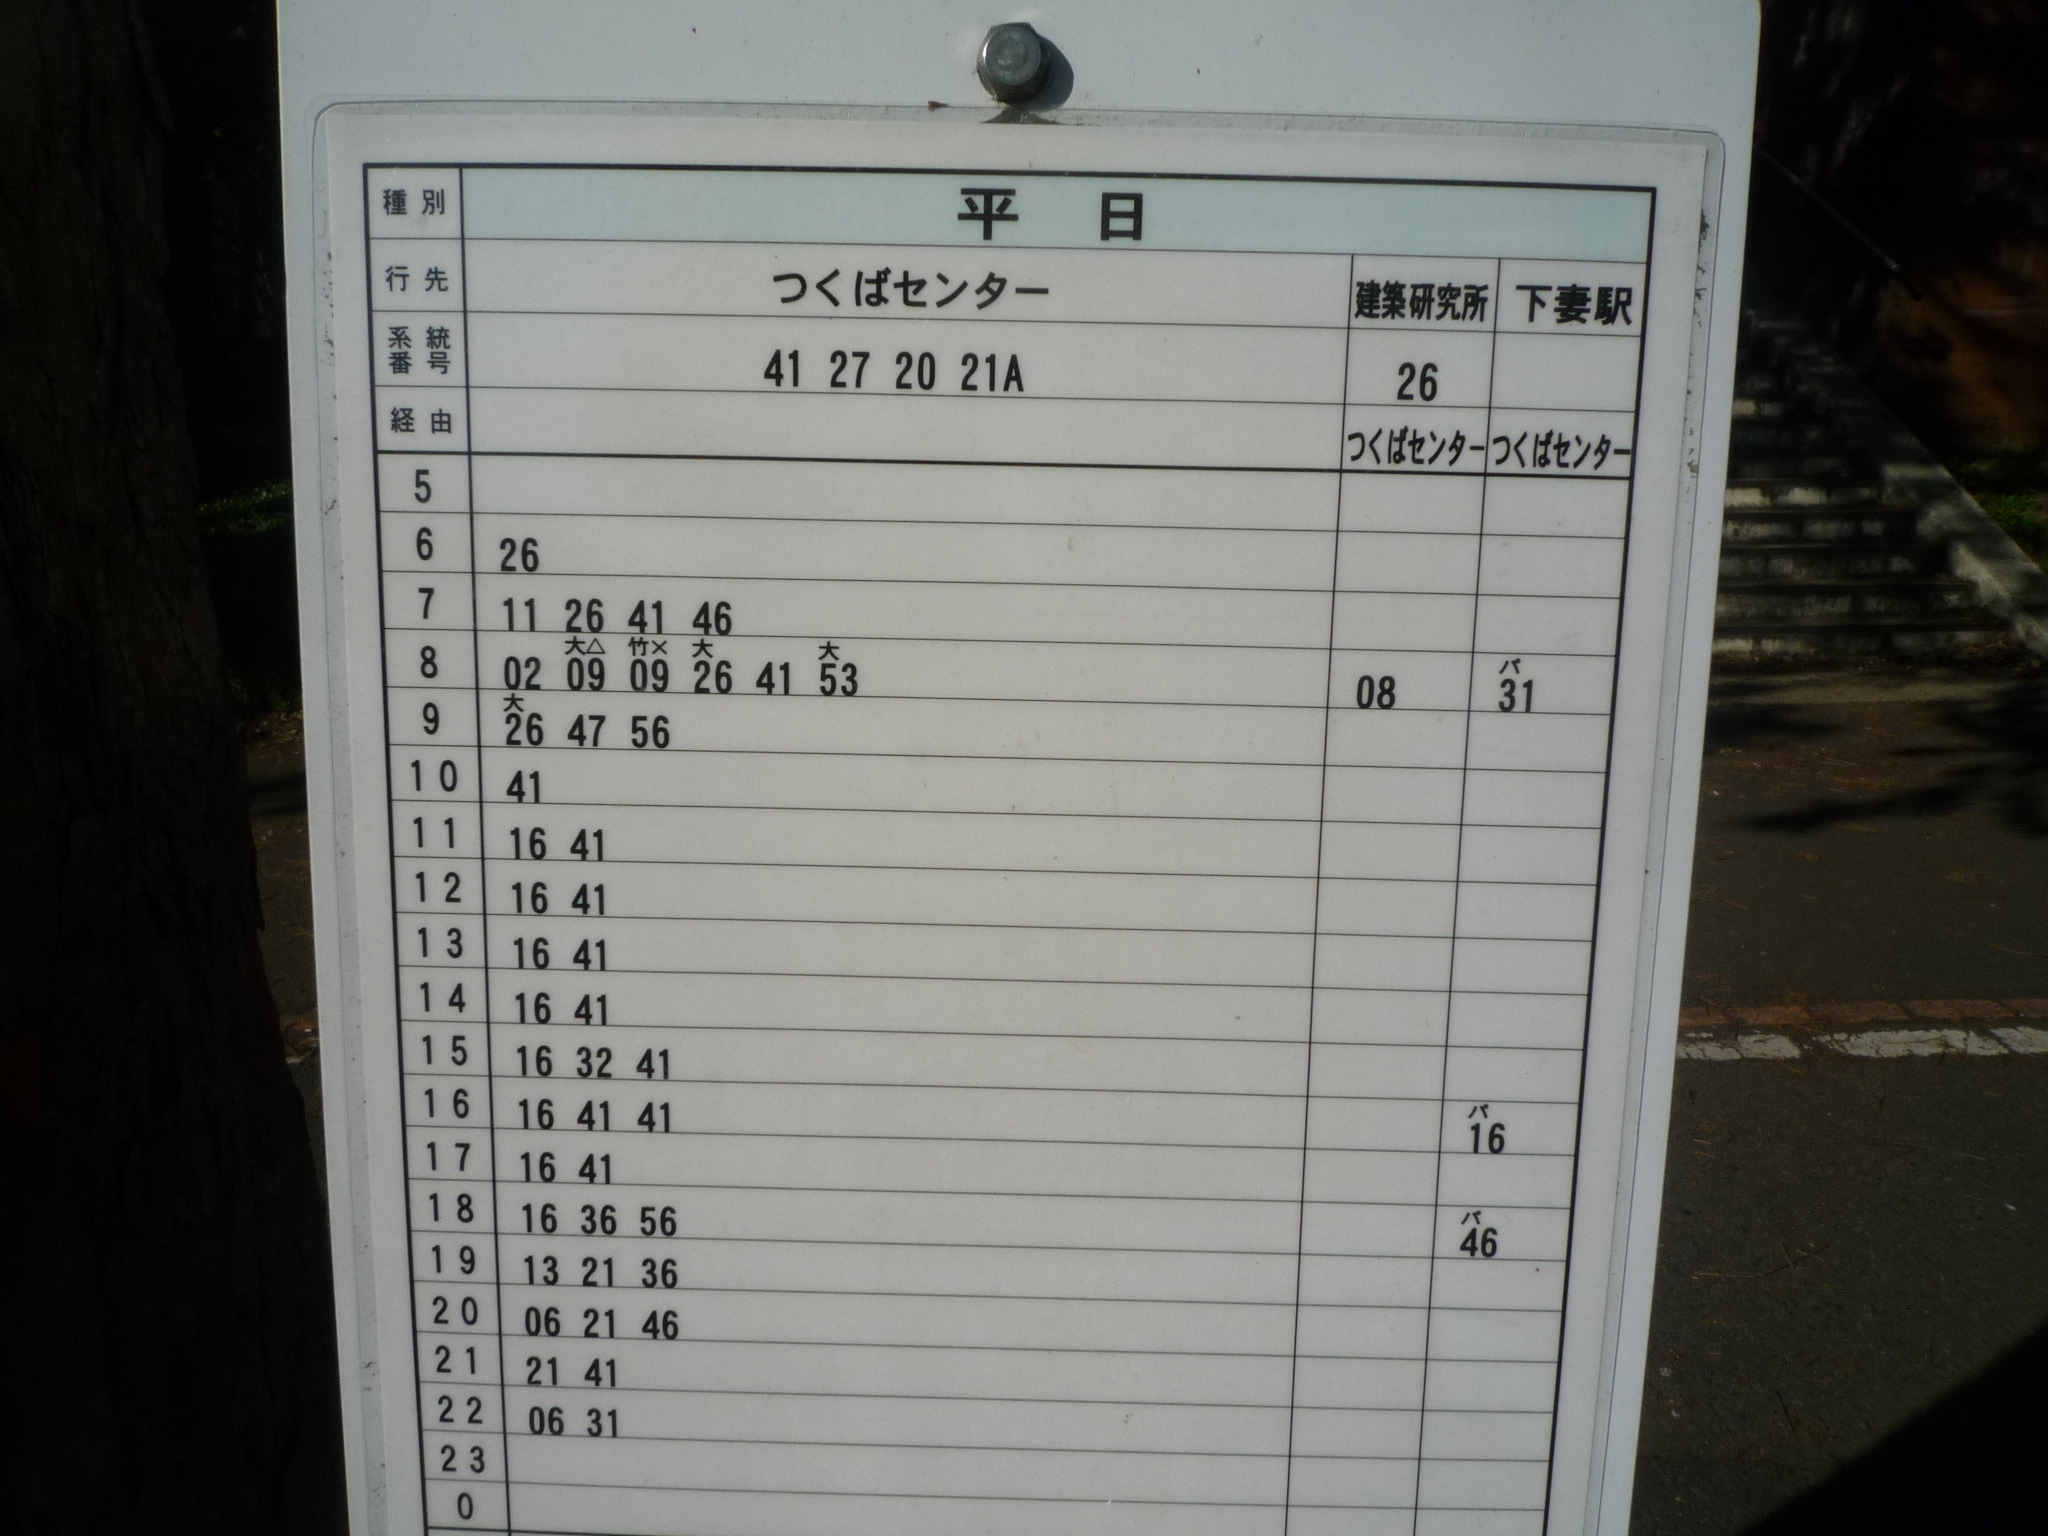 種別 平日
行先 つくばセンター 建築研究所 下妻駅
系統番号 41 27 20 21A 26
経由 つくばセンター つくばセンター
5
6 26
7 11 26 41 46
大△ 竹× 大 大 パ
8 02 09 09 26 41 53 08 31
大
9 26 47 56
10 41
11 16 41
12 16 41
13 16 41
14 16 41
15 16 32 41
パ
16 16 41 41 16
17 16 41
パ
18 16 36 56 46
19 13 21 36
20 06 21 46
21 21 41
22 06 31
23
0